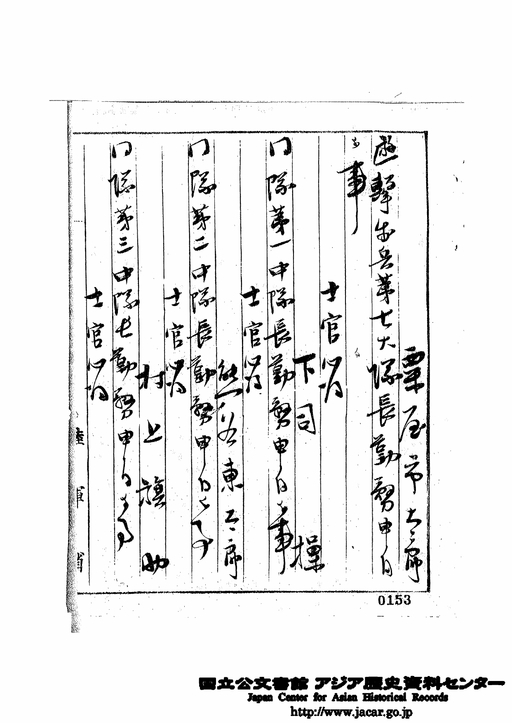 粟屋市太郎
遊撃歩兵第七大隊長勤務申付
候事
士官心得
下司 操
同隊第一中隊長勤務申付候事
士官心得
東太郎
同隊第二中隊長勤務申付候事
士官心得
村上旗助
同隊第三中隊長勤務申付候事
士官心得
陸軍省
0153
国立公文書館 アジア歴史資料センター
Japan Center for Asian Historical Records
http://www.jacar.go.jp